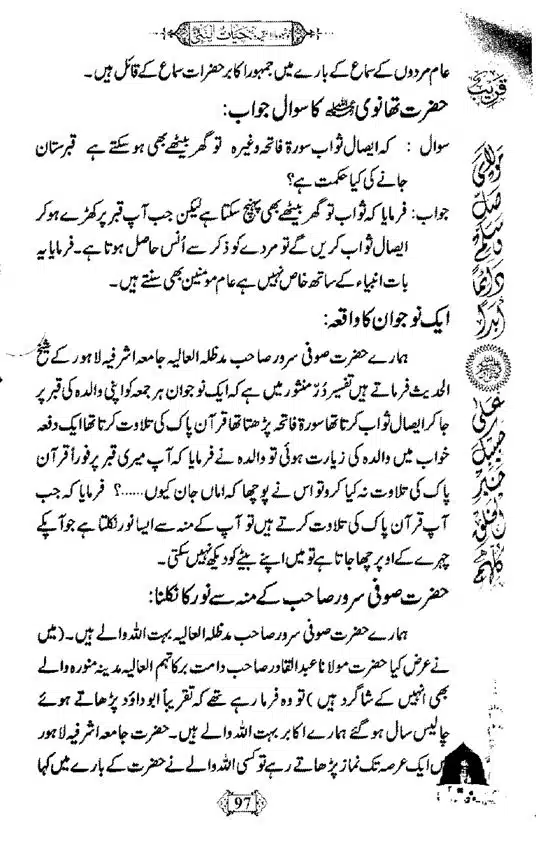 حیات النبی
عام مردوں کے سماع کے بارے میں جمہور اکابر حضرات سماع کے قائل ہیں۔
حضرت تھانوی رحمۃ اللہ علیہ کا سوال جواب:
سوال : کہ ایصال ثواب سورۃ فاتحہ وغیرہ تو گھر بیٹھے بھی ہو سکتے ہے قبرستان
جانے کی کیا حکمت ہے؟
جواب: فرمایا کہ ثواب تو گھر بیٹھے بھی پہنچ سکتا ہے لیکن جب آپ قبر پر کھڑے ہو کر
ایصال ثواب کریں گے تو مردے کو ذکر سے اُنس حاصل ہوتا ہے۔ فرمایا یہ
بات انبیاء کے ساتھ خاص نہیں ہے عام مومنین بھی سنتے ہیں۔
ایک نوجوان کا واقعہ:
ہمارے حضرت صوفی سرور صاحب مدظلہ العالیہ جامعہ اشرفیہ لاہور کے شیخ
الحدیث فرماتے ہیں تفسیر دُرّ منثور میں ہے کہ ایک نوجوان ہر جمعہ کو اپنی والدہ کی قبر پر
جا کر ایصال ثواب کرتا تھا سورۃ فاتحہ پڑھتا تھا قرآن پاک کی تلاوت کرتا تھا ایک دفعہ
خواب میں والدہ کی زیارت ہوئی تو والدہ نے فرمایا کہ آپ میری قبر پر فوراً قرآن
پاک کی تلاوت نہ کیا کرو تو اس نے پوچھا کہ اماں جان کیوں......؟ فرمایا کہ جب
آپ قرآن پاک کی تلاوت کرتے ہیں تو آپ کے منہ سے ایسا نور نکلتا ہے جو آپکے
چہرے کے اوپر چھا جاتا ہے تو میں اپنے بیٹے کو دیکھ نہیں سکتی۔
حضرت صوفی سرور صاحب کے منہ سے نور کا نکلنا:
ہمارے حضرت صوفی سرور صاحب مدظلہ العالیہ بہت اللہ والے ہیں۔ (میں
نے عرض کیا حضرت مولانا عبدالقادر صاحب دامت برکاتہم العالیہ مدینہ منورہ والے
بھی انہیں کے شاگرد ہیں) تو وہ فرما رہے تھے کہ تقریباً ابو داؤد پڑھاتے ہوئے
چالیس سال ہو گئے ہمارے اکابر بہت اللہ والے ہیں۔ حضرت جامعہ اشرفیہ لاہور
میں ایک عرصہ تک نماز پڑھاتے رہے تو کسی اللہ والے نے حضرت کے بارے میں کہا
97
مولای صل وسلم دائما ابدا
علی حبیبک خیر الخلق کلهم